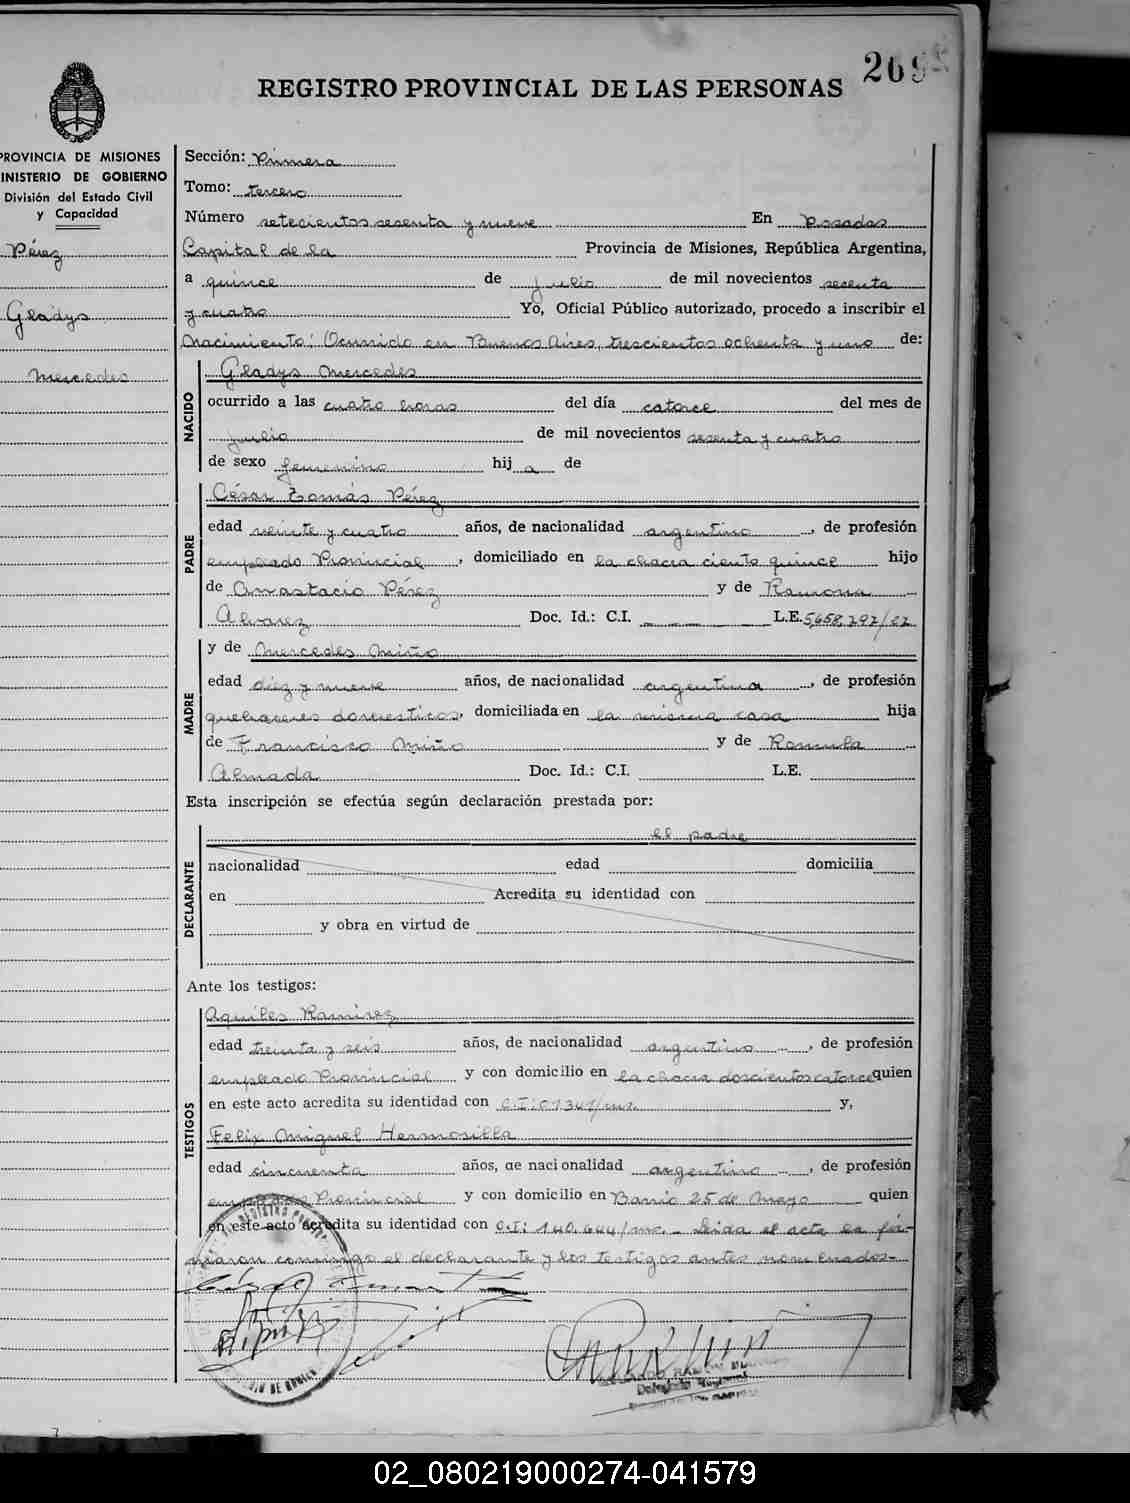 269
REGISTRO PROVINCIAL DE LAS PERSONAS
PROVINCIA DE MISIONES
MINISTERIO DE GOBIERNO
División del Estado Civil
y Capacidad
Pérez
Gladys
Mercedes
Sección: Primera
Tomo: tercero
Número setecientos sesenta y nueve En Posadas
Capital de la Provincia de Misiones, República Argentina,
a quince de Julio de mil novecientos sesenta
y cuatro Yo, Oficial Público autorizado, procedo a inscribir el
nacimiento: Ocurrido en Buenos Aires, trescientos ochenta y uno de:
NACIDO
Gladys Mercedes
ocurrido a las cuatro horas del día catorce del mes de
Julio de mil novecientos sesenta y cuatro
de sexo femenino hij a de
PADRE
César Tomás Pérez
edad veinte y cuatro años, de nacionalidad argentino, de profesión
empleado Provincial, domiciliado en la chacra ciento quince hijo
de Anastacio Pérez y de Ramona
Alvarez Doc. Id.: C.I. L.E. 5,658,292/
MADRE
y de Mercedes Miño
edad diez y nueve años, de nacionalidad argentina, de profesión
quehaceres domesticos, domiciliada en la misma casa hija
de Francisco Miño y de Romula
Almada Doc. Id.: C.I. L.E.
Esta inscripción se efectúa según declaración prestada por:
DECLARANTE
el padre
nacionalidad edad domicilia
en Acredita su identidad con
y obra en virtud de
Ante los testigos:
TESTIGOS
Aquiles Ramirez
edad treinta y seis años, de nacionalidad argentino, de profesión
empleado Provincial y con domicilio en la chacra doscientos catorce quien
en este acto acredita su identidad con C.I: y,
Felix Miguel Hermosilla
edad cincuenta años, de nacionalidad argentino, de profesión
empleado Provincial y con domicilio en Barrio 25 de Mayo quien
en este acto acredita su identidad con C.I: 140.644/ms. Leida el acta la fir-
maron conmigo el declarante y los testigos antes nombrados-
02_080219000274-041579